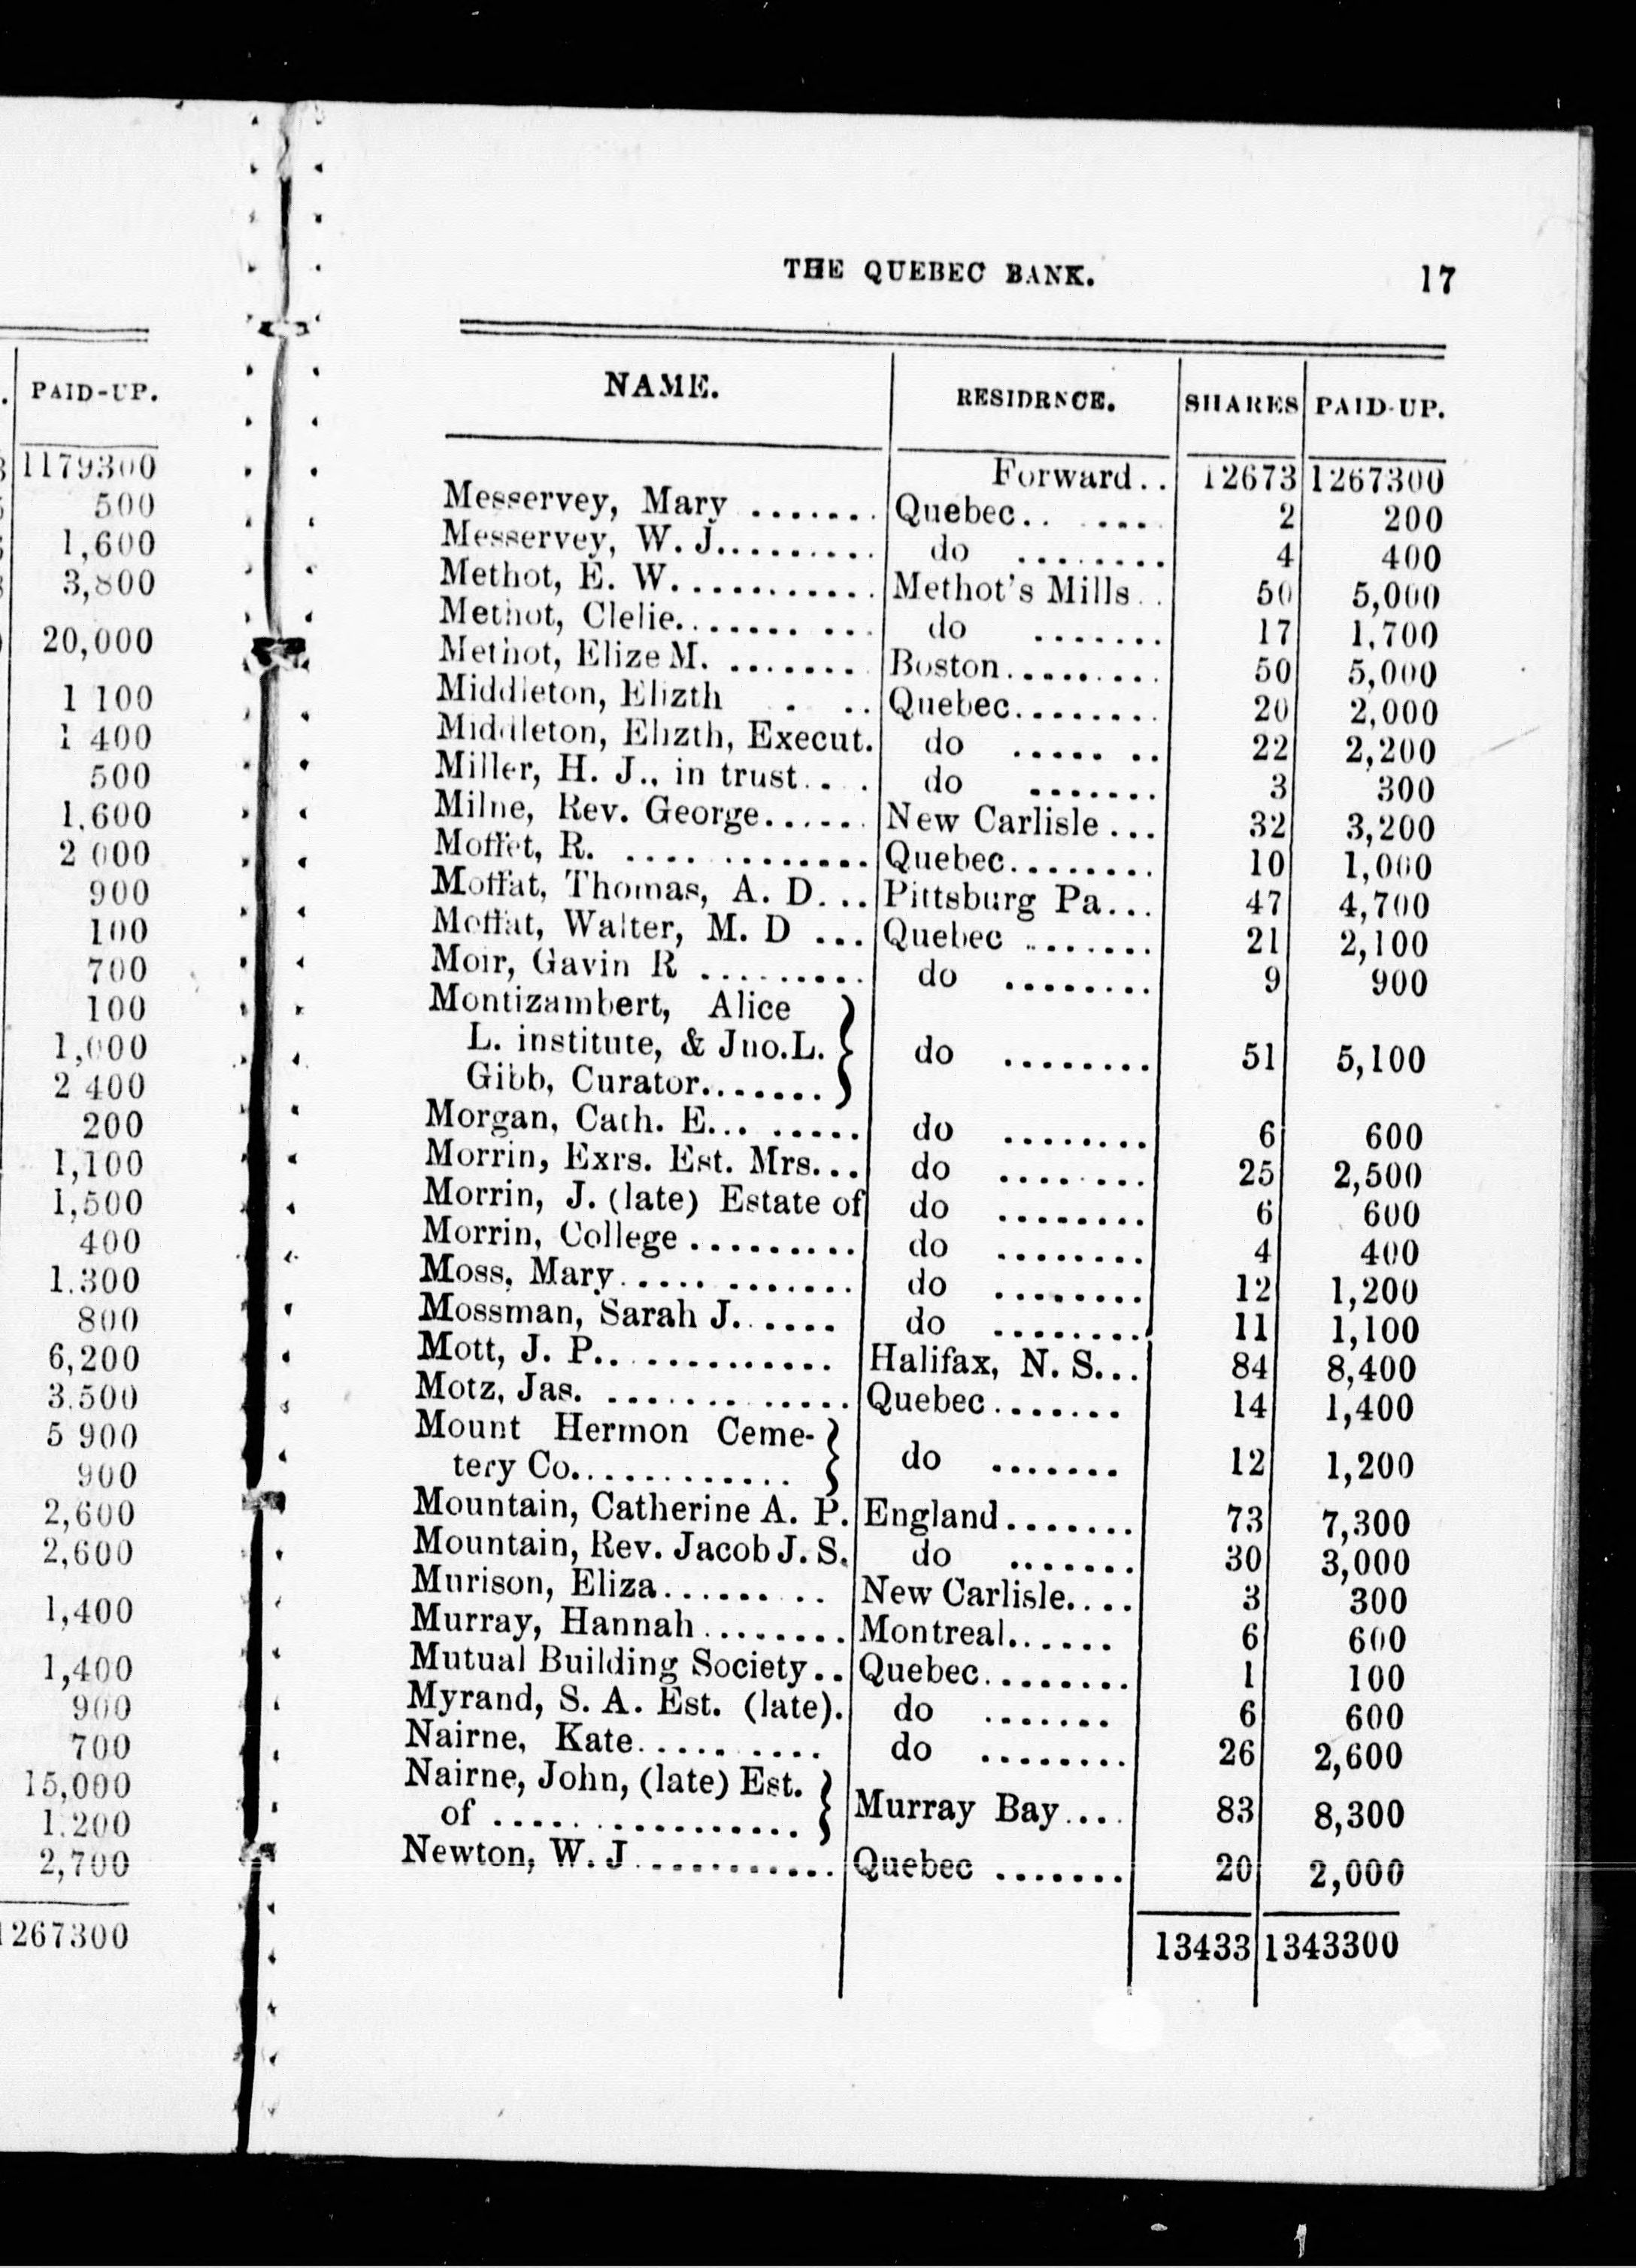 PAID-UP.
1179300
500
1,600
3,800
20,000
1 100
1 400
500
1.600
2 000
900
100
700
100
1,000
2 400
200
1,100
1,500
400
1.300
800
6,200
3.500
5 900
900
2,600
2,600
1,400
1,400
900
700
15,000
1.200
2,700
1267300
THE QUEBEC BANK. 17
NAME. RESIDRNCE. SHARES PAID-UP.
Forward.. 12673 1267300
Messervey, Mary ....... Quebec.. .... 2 200
Messervey, W. J......... do ........ 4 400
Methot, E. W. ........... Methot's Mills.. 50 5,000
Methot, Clelie........ ... do ....... 17 1,700
Methot, Elize M. ....... Boston......... 50 5,000
Middleton, Elizth . .. Quebec........ 20 2,000
Middleton, Elizth, Execut. do ..... .. 22 2,200
Miller, H. J., in trust.. . . do ....... 3 300
Milne, Rev. George...... New Carlisle ... 32 3,200
Moffet, R. .... ......... Quebec........ 10 1,000
Moffat, Thomas, A. D... Pittsburg Pa... 47 4,700
Moffat, Walter, M. D ... Quebec ....... 21 2,100
Moir, Gavin R ......... do ........ 9 900
Montizambert, Alice
L. institute, & Jno. L. } do ........ 51 5,100
Gibb, Curator.......
Morgan, Cath. E... ..... do ........ 6 600
Morrin, Exrs. Est. Mrs... do ........ 25 2,500
Morrin, J. (late) Estate of do ........ 6 600
Morrin, College ......... do ........ 4 400
Moss, Mary..... ....... do ........ 12 1,200
Mossman, Sarah J. ..... do ........ 11 1,100
Mott, J. P.. ........... Halifax, N. S... 84 8,400
Motz, Jas. ............. Quebec....... 14 1,400
Mount Hermon Ceme-
tery Co............. } do ....... 12 1,200
Mountain, Catherine A. P. England....... 73 7,300
Mountain, Rev. Jacob J. S. do ....... 30 3,000
Murison, Eliza....... .. New Carlisle.... 3 300
Murray, Hannah ........ Montreal...... 6 600
Mutual Building Society.. Quebec........ 1 100
Myrand, S. A. Est. (late). do ....... 6 600
Nairne, Kate.......... do ........ 26 2,600
Nairne, John, (late) Est.
of ................. } Murray Bay.... 83 8,300
Newton, W. J............ Quebec ....... 20 2,000
13433 1343300